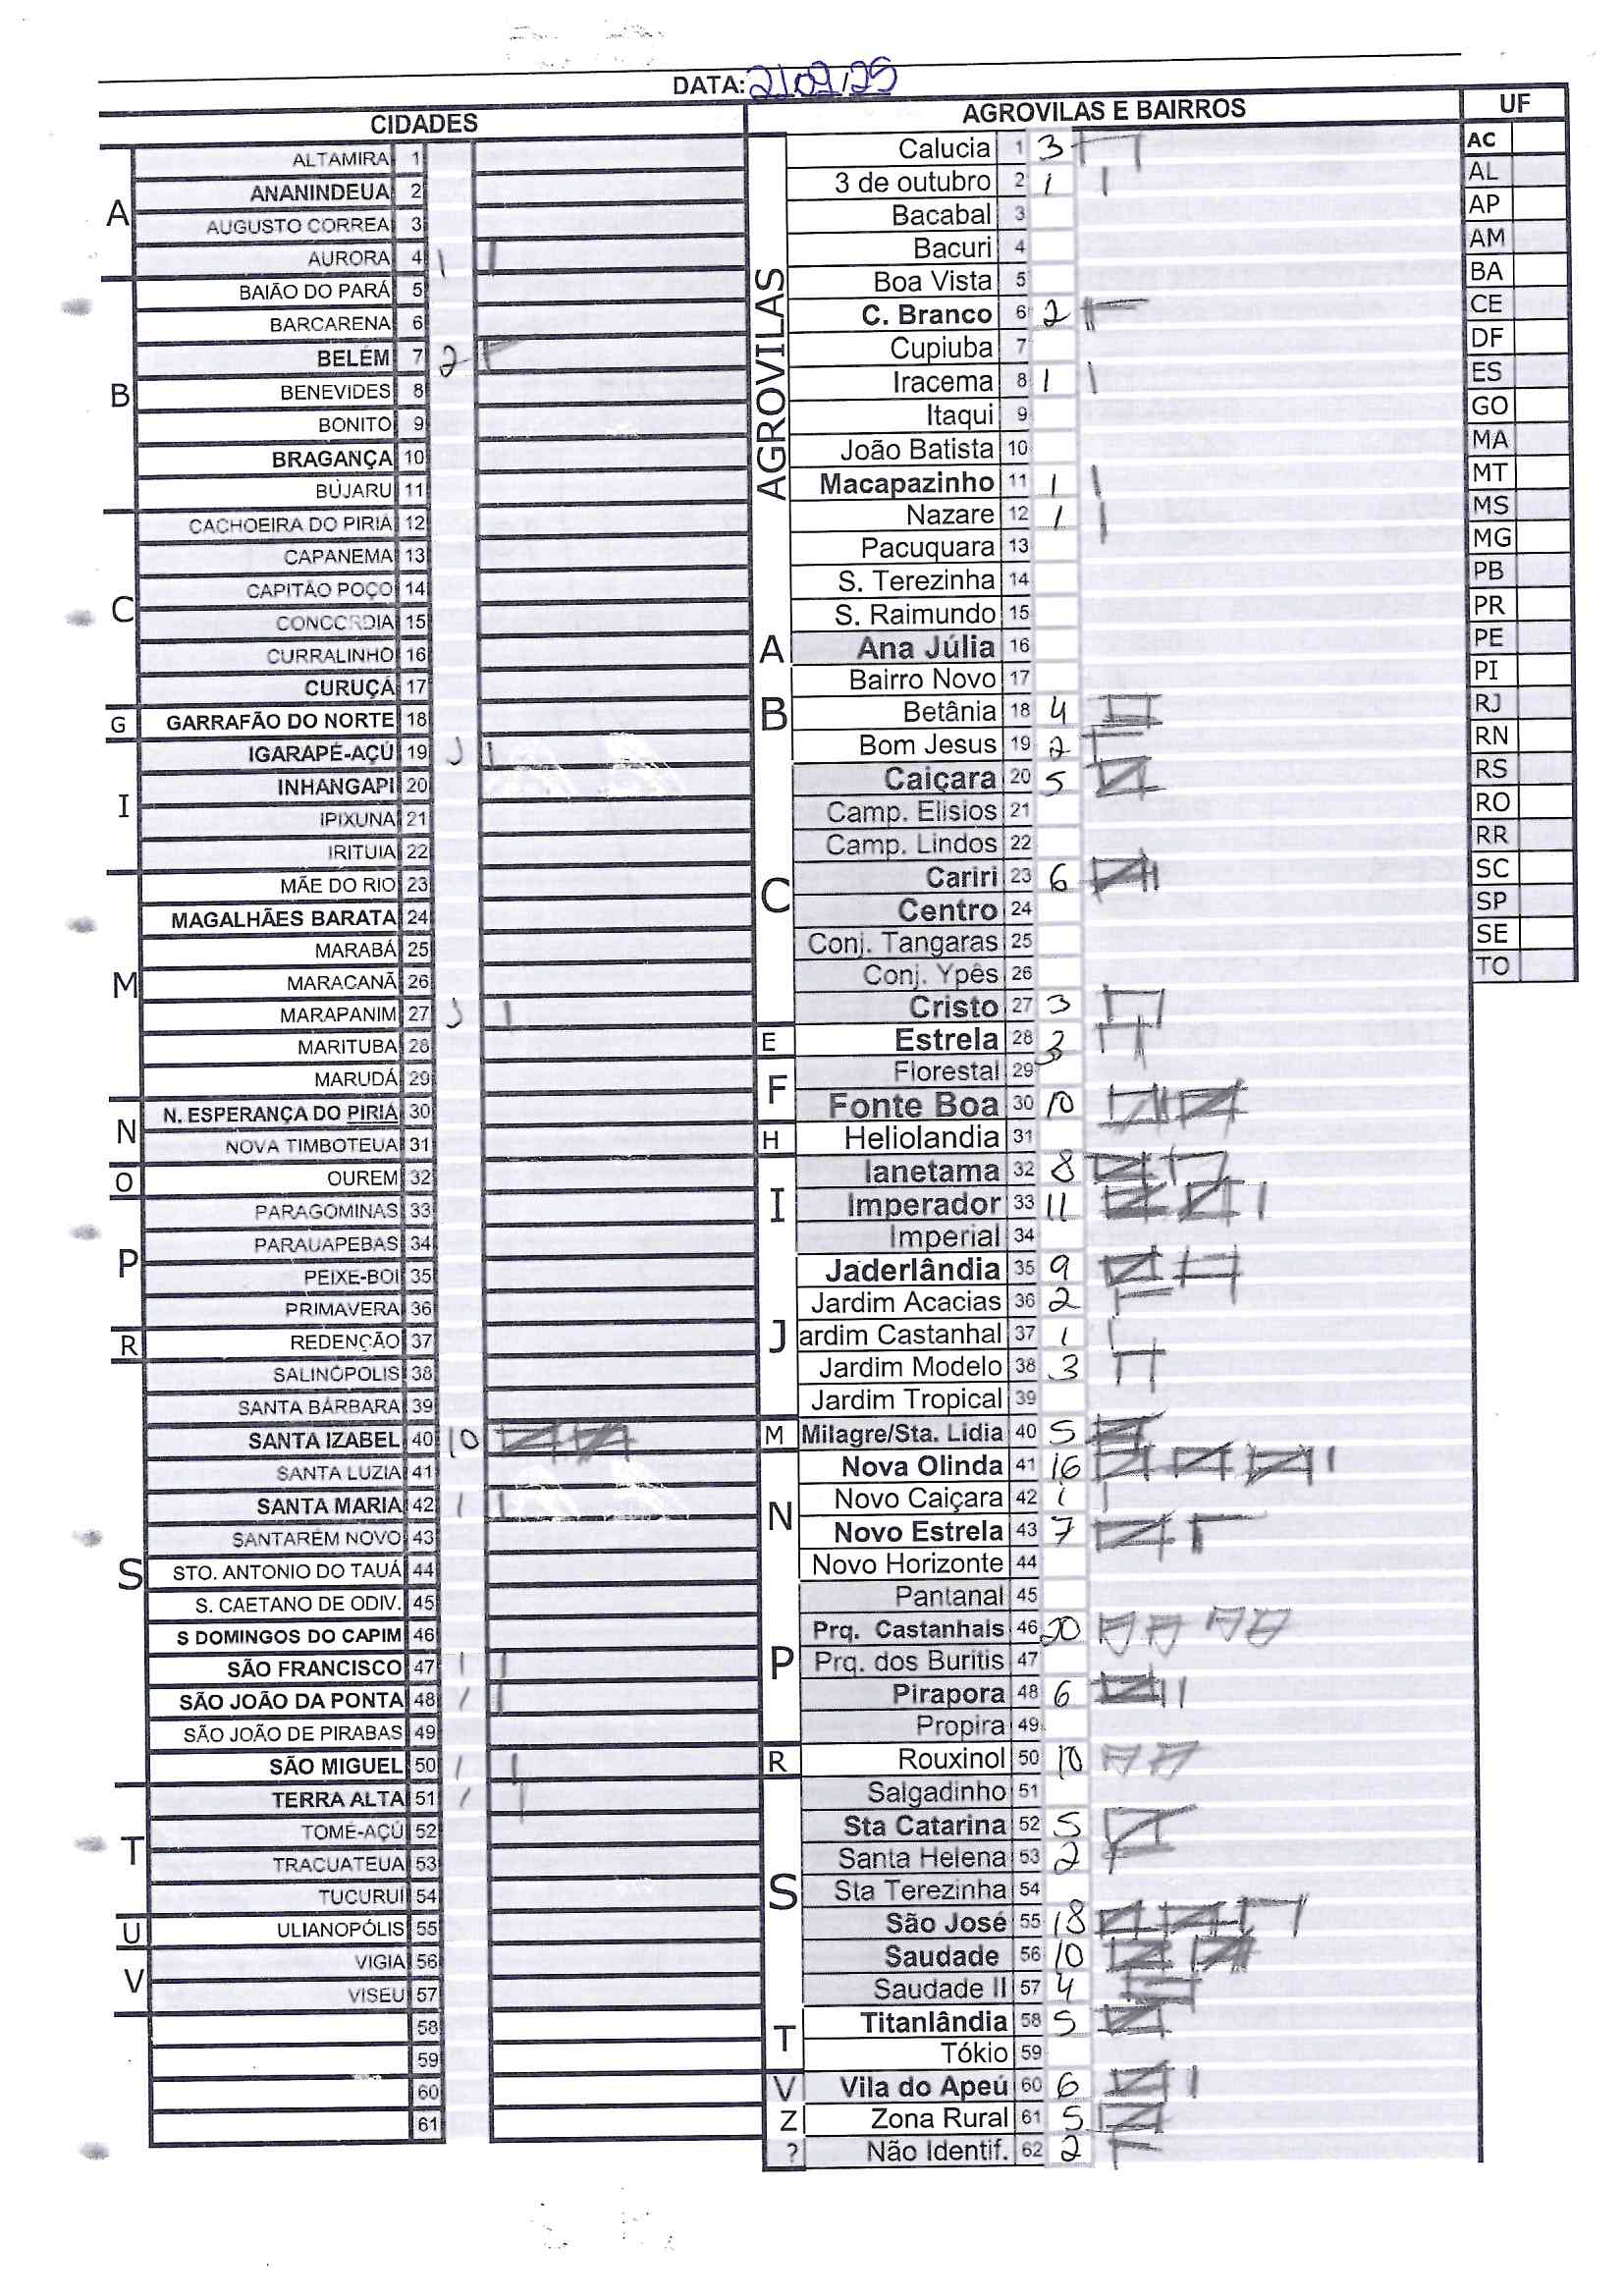 DATA: 21/09/25
CIDADES
A
ALTAMIRA 1
ANANINDEUA 2
AUGUSTO CORREA 3
AURORA 4 1
B
BAIÃO DO PARÁ 5
BARCARENA 6
BELÉM 7 2
BENEVIDES 8
BONITO 9
BRAGANÇA 10
BUJARU 11
C
CACHOEIRA DO PIRIÁ 12
CAPANEMA 13
CAPITÃO POÇO 14
CONCORDIA 15
CURRALINHO 16
CURUÇÁ 17
G
GARRAFÃO DO NORTE 18
I
IGARAPÉ-AÇÚ 19 1
INHANGAPI 20
IPIXUNA 21
IRITUIA 22
M
MÃE DO RIO 23
MAGALHÃES BARATA 24
MARABÁ 25
MARACANÃ 26
MARAPANIM 27 1
MARITUBA 28
MARUDÁ 29
N
N. ESPERANÇA DO PIRIÁ 30
NOVA TIMBOTEUA 31
O
OUREM 32
P
PARAGOMINAS 33
PARAUAPEBAS 34
PEIXE-BOI 35
PRIMAVERA 36
R
REDENÇÃO 37
S
SALINÓPOLIS 38
SANTA BÁRBARA 39
SANTA IZABEL 40 10
SANTA LUZIA 41
SANTA MARIA 42 1
SANTARÉM NOVO 43
STO. ANTONIO DO TAUÁ 44
S. CAETANO DE ODIV. 45
S DOMINGOS DO CAPIM 46
SÃO FRANCISCO 47 1
SÃO JOÃO DA PONTA 48 1
SÃO JOÃO DE PIRABAS 49
SÃO MIGUEL 50 1
T
TERRA ALTA 51 1
TOMÉ-AÇÚ 52
TRACUATEUA 53
TUCURUI 54
U
ULIANOPÓLIS 55
V
VIGIA 56
VISEU 57
58
59
60
61
AGROVILAS E BAIRROS
AGROVILAS
Calucia 1 3
3 de outubro 2 1
Bacabal 3
Bacuri 4
Boa Vista 5
C. Branco 6 2
Cupiuba 7
Iracema 8 1
Itaqui 9
João Batista 10
Macapazinho 11 1
Nazare 12 1
Pacuquara 13
S. Terezinha 14
S. Raimundo 15
A
Ana Júlia 16
B
Bairro Novo 17
Betânia 18 4
Bom Jesus 19 2
C
Caiçara 20 5
Camp. Elisios 21
Camp. Lindos 22
Cariri 23 6
Centro 24
Conj. Tangaras 25
Conj. Ypês 26
Cristo 27 3
E
Estrela 28 3
F
Florestal 29
Fonte Boa 30 10
H
Heliolandia 31
I
Ianetama 32 8
Imperador 33 11
Imperial 34
J
Jaderlândia 35 9
Jardim Acacias 36 2
ardim Castanhal 37 1
Jardim Modelo 38 3
Jardim Tropical 39
M
Milagre/Sta. Lidia 40 5
N
Nova Olinda 41 16
Novo Caiçara 42 1
Novo Estrela 43 7
Novo Horizonte 44
P
Pantanal 45
Prq. Castanhais 46 20
Prq. dos Buritis 47
Pirapora 48 6
Propira 49
R
Rouxinol 50 10
S
Salgadinho 51
Sta Catarina 52 5
Santa Helena 53 2
Sta Terezinha 54
São José 55 18
Saudade 56 10
Saudade II 57 4
T
Titanlândia 58 5
Tókio 59
V
Vila do Apeú 60 6
Z
Zona Rural 61 5
?
Não Identif. 62 2
UF
AC
AL
AP
AM
BA
CE
DF
ES
GO
MA
MT
MS
MG
PB
PR
PE
PI
RJ
RN
RS
RO
RR
SC
SP
SE
TO